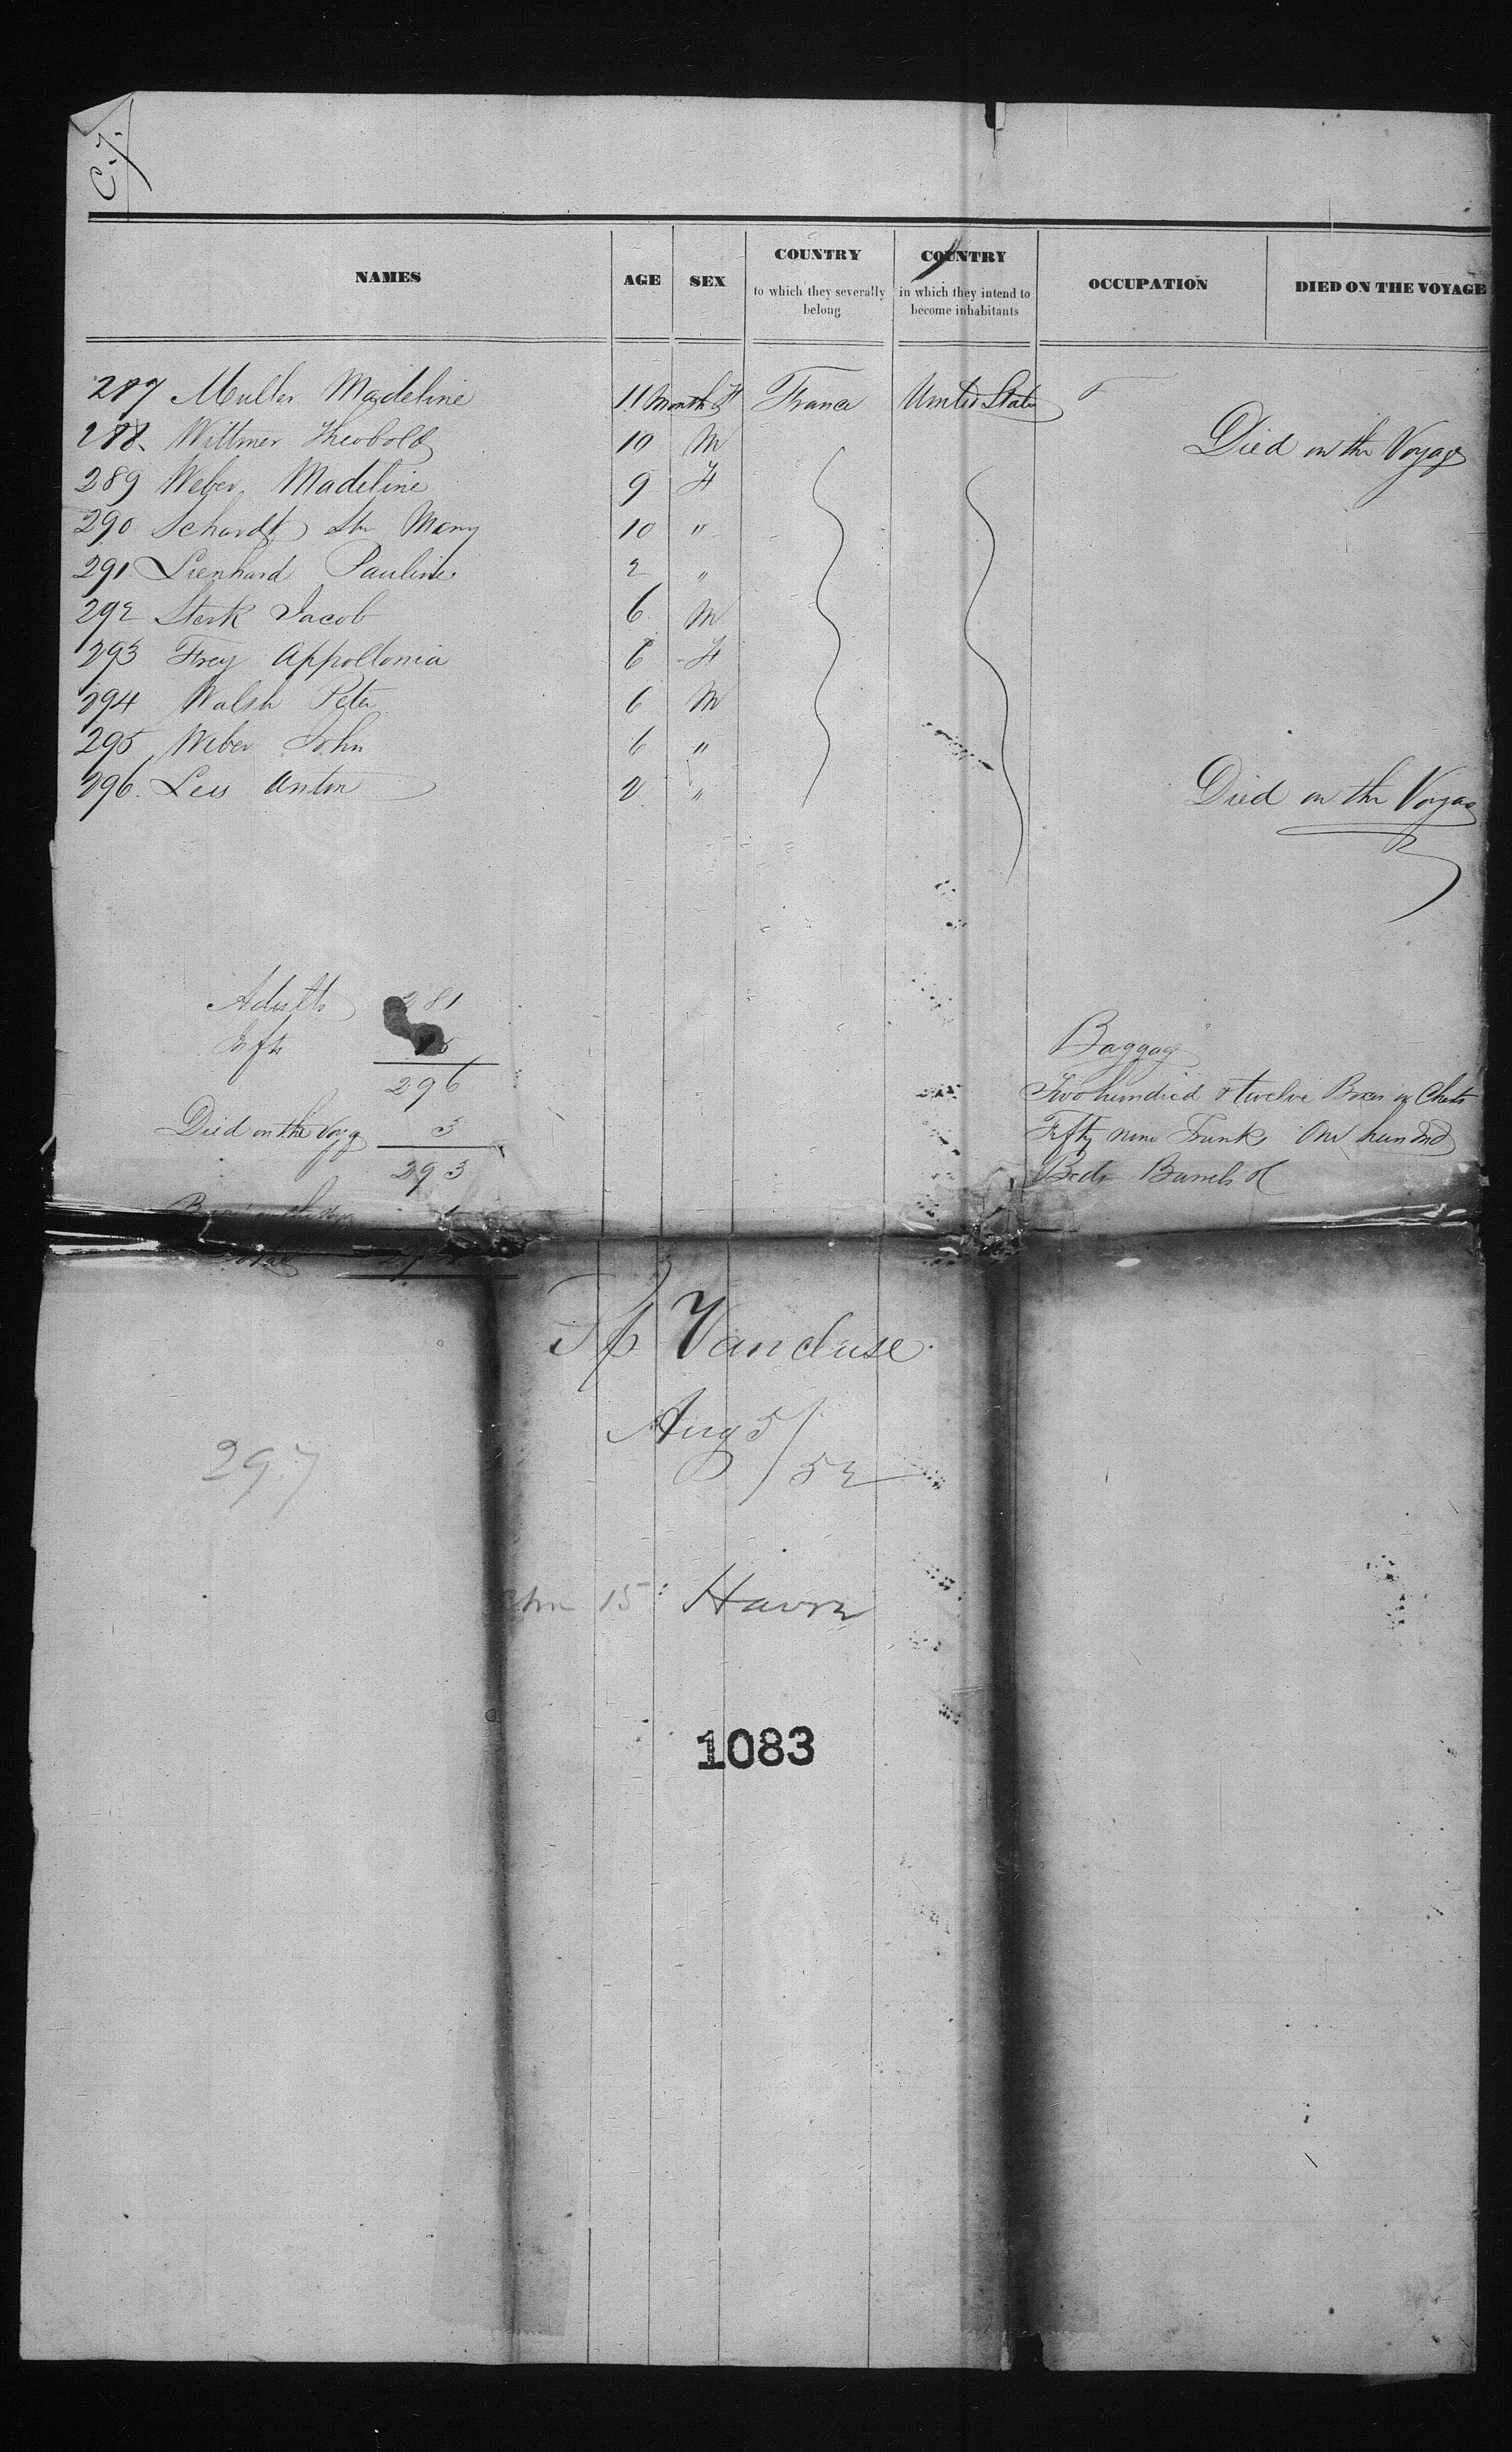 C.7.
NAMES AGE SEX COUNTRY to which they severally belong COUNTRY in which they intend to become inhabitants OCCUPATION DIED ON THE VOYAGE
287 Muller Madeline 11 Month F France United States
288. Wittmer Theobold 10 M Died on the Voyage
289 Weber Madeline 9 F
290 Schardt Mary 10 "
291 Lienhard Pauline 2 "
292 Sterk Jacob 6 M
293 Frey Appollonia 6 F
294 Walsh Peter 6 M
295 Weber John 6 "
296. Leis Anton 2 " Died on the Voyag
Adults 281
Infts 15
296
Died on the Voyg 3
293
Total
Baggage
Two hundred & twelve Boxes or Chests
Fifty nine Trunks One hundred
Beds Barrels &c
Sp Vancluse
Aug 5/52
297
15 Havre
1083